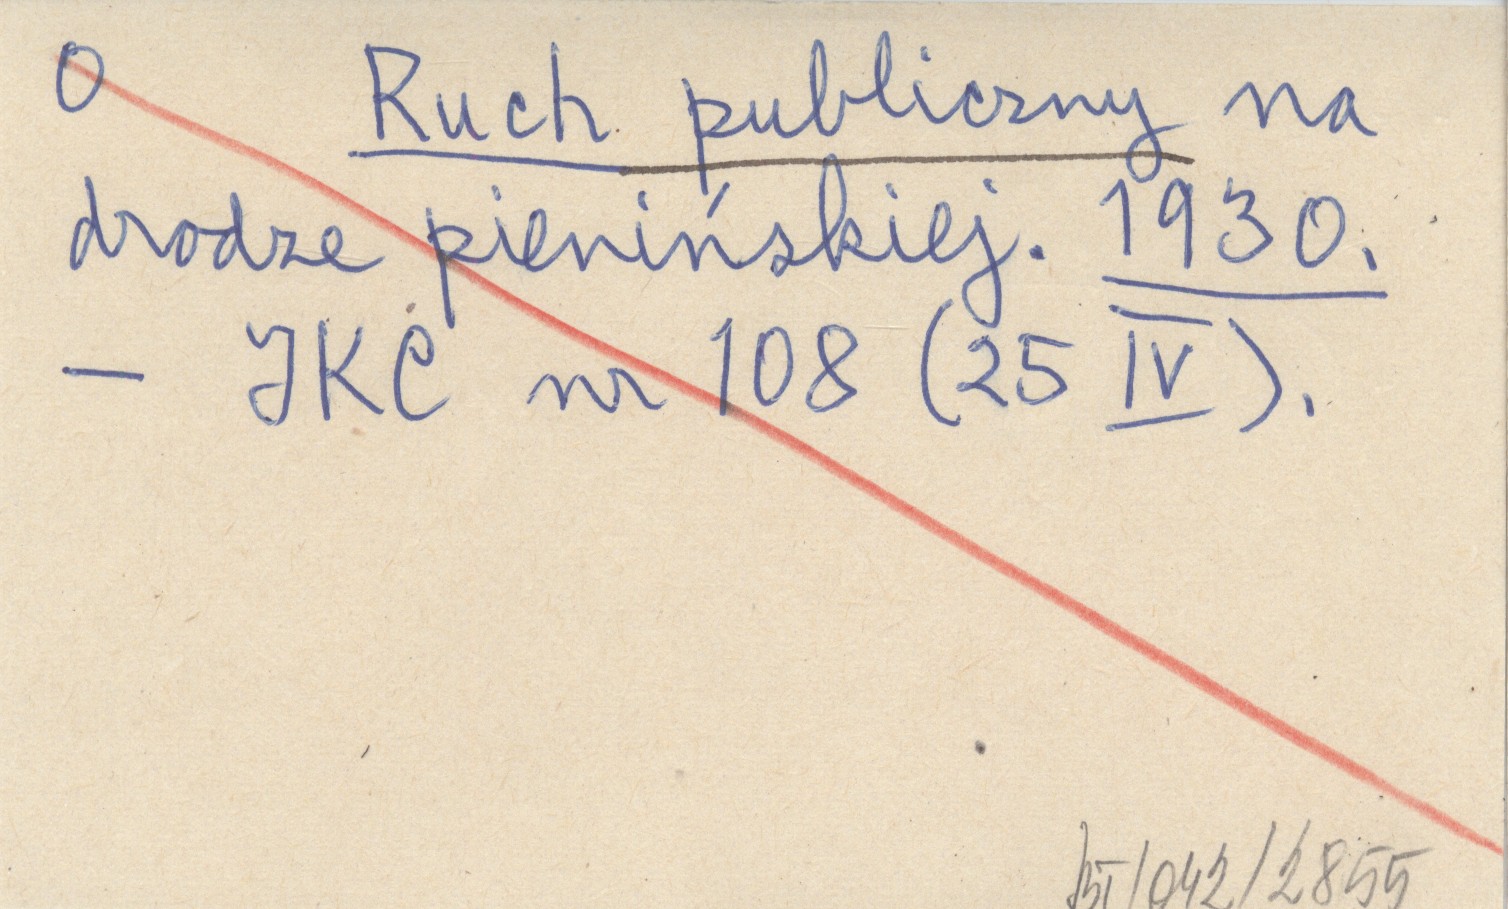 O Ruch publiczny na
drodze pienińskiej. 1930.
— IKC nr 108 (25 IV).
/042/2855